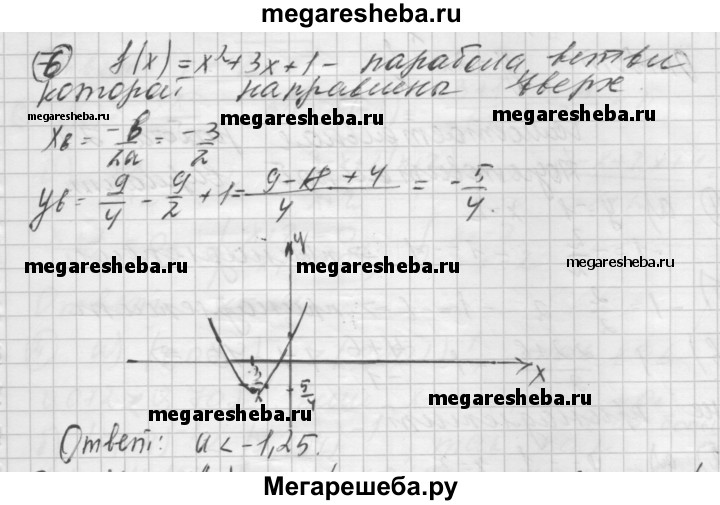 megaresheba.ru
6 f(x) = x² + 3x + 1 - парабола, ветви
которой направлены вверх
megaresheba.ru megaresheba.ru megaresheba.ru
xв = -в/2a = -3/2
yв = 9/4 - 9/2 + 1 = (9 - 18 + 4)/4 = -5/4.
y
megaresheba.ru megaresheba.ru megaresheba.ru
-3/2
x
-5/4
megaresheba.ru megaresheba.ru
Ответ: a < -1,25.
Мегарешеба.ру